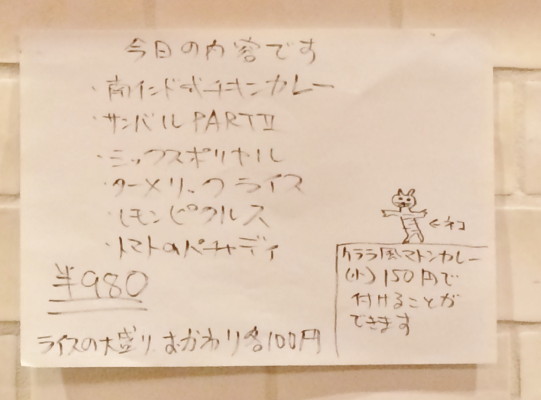 今日の内容です
・南インド式チキンカレー
・サンバルPARTⅡ
・ミックスポリヤル
・ターメリックライス
・レモンピクルス
・トマトのパチャディ
¥980
ライスの大盛り、おかわり各100円
←ネコ
ケララ風マトンカレー
(小)150円で
付けることが
できます